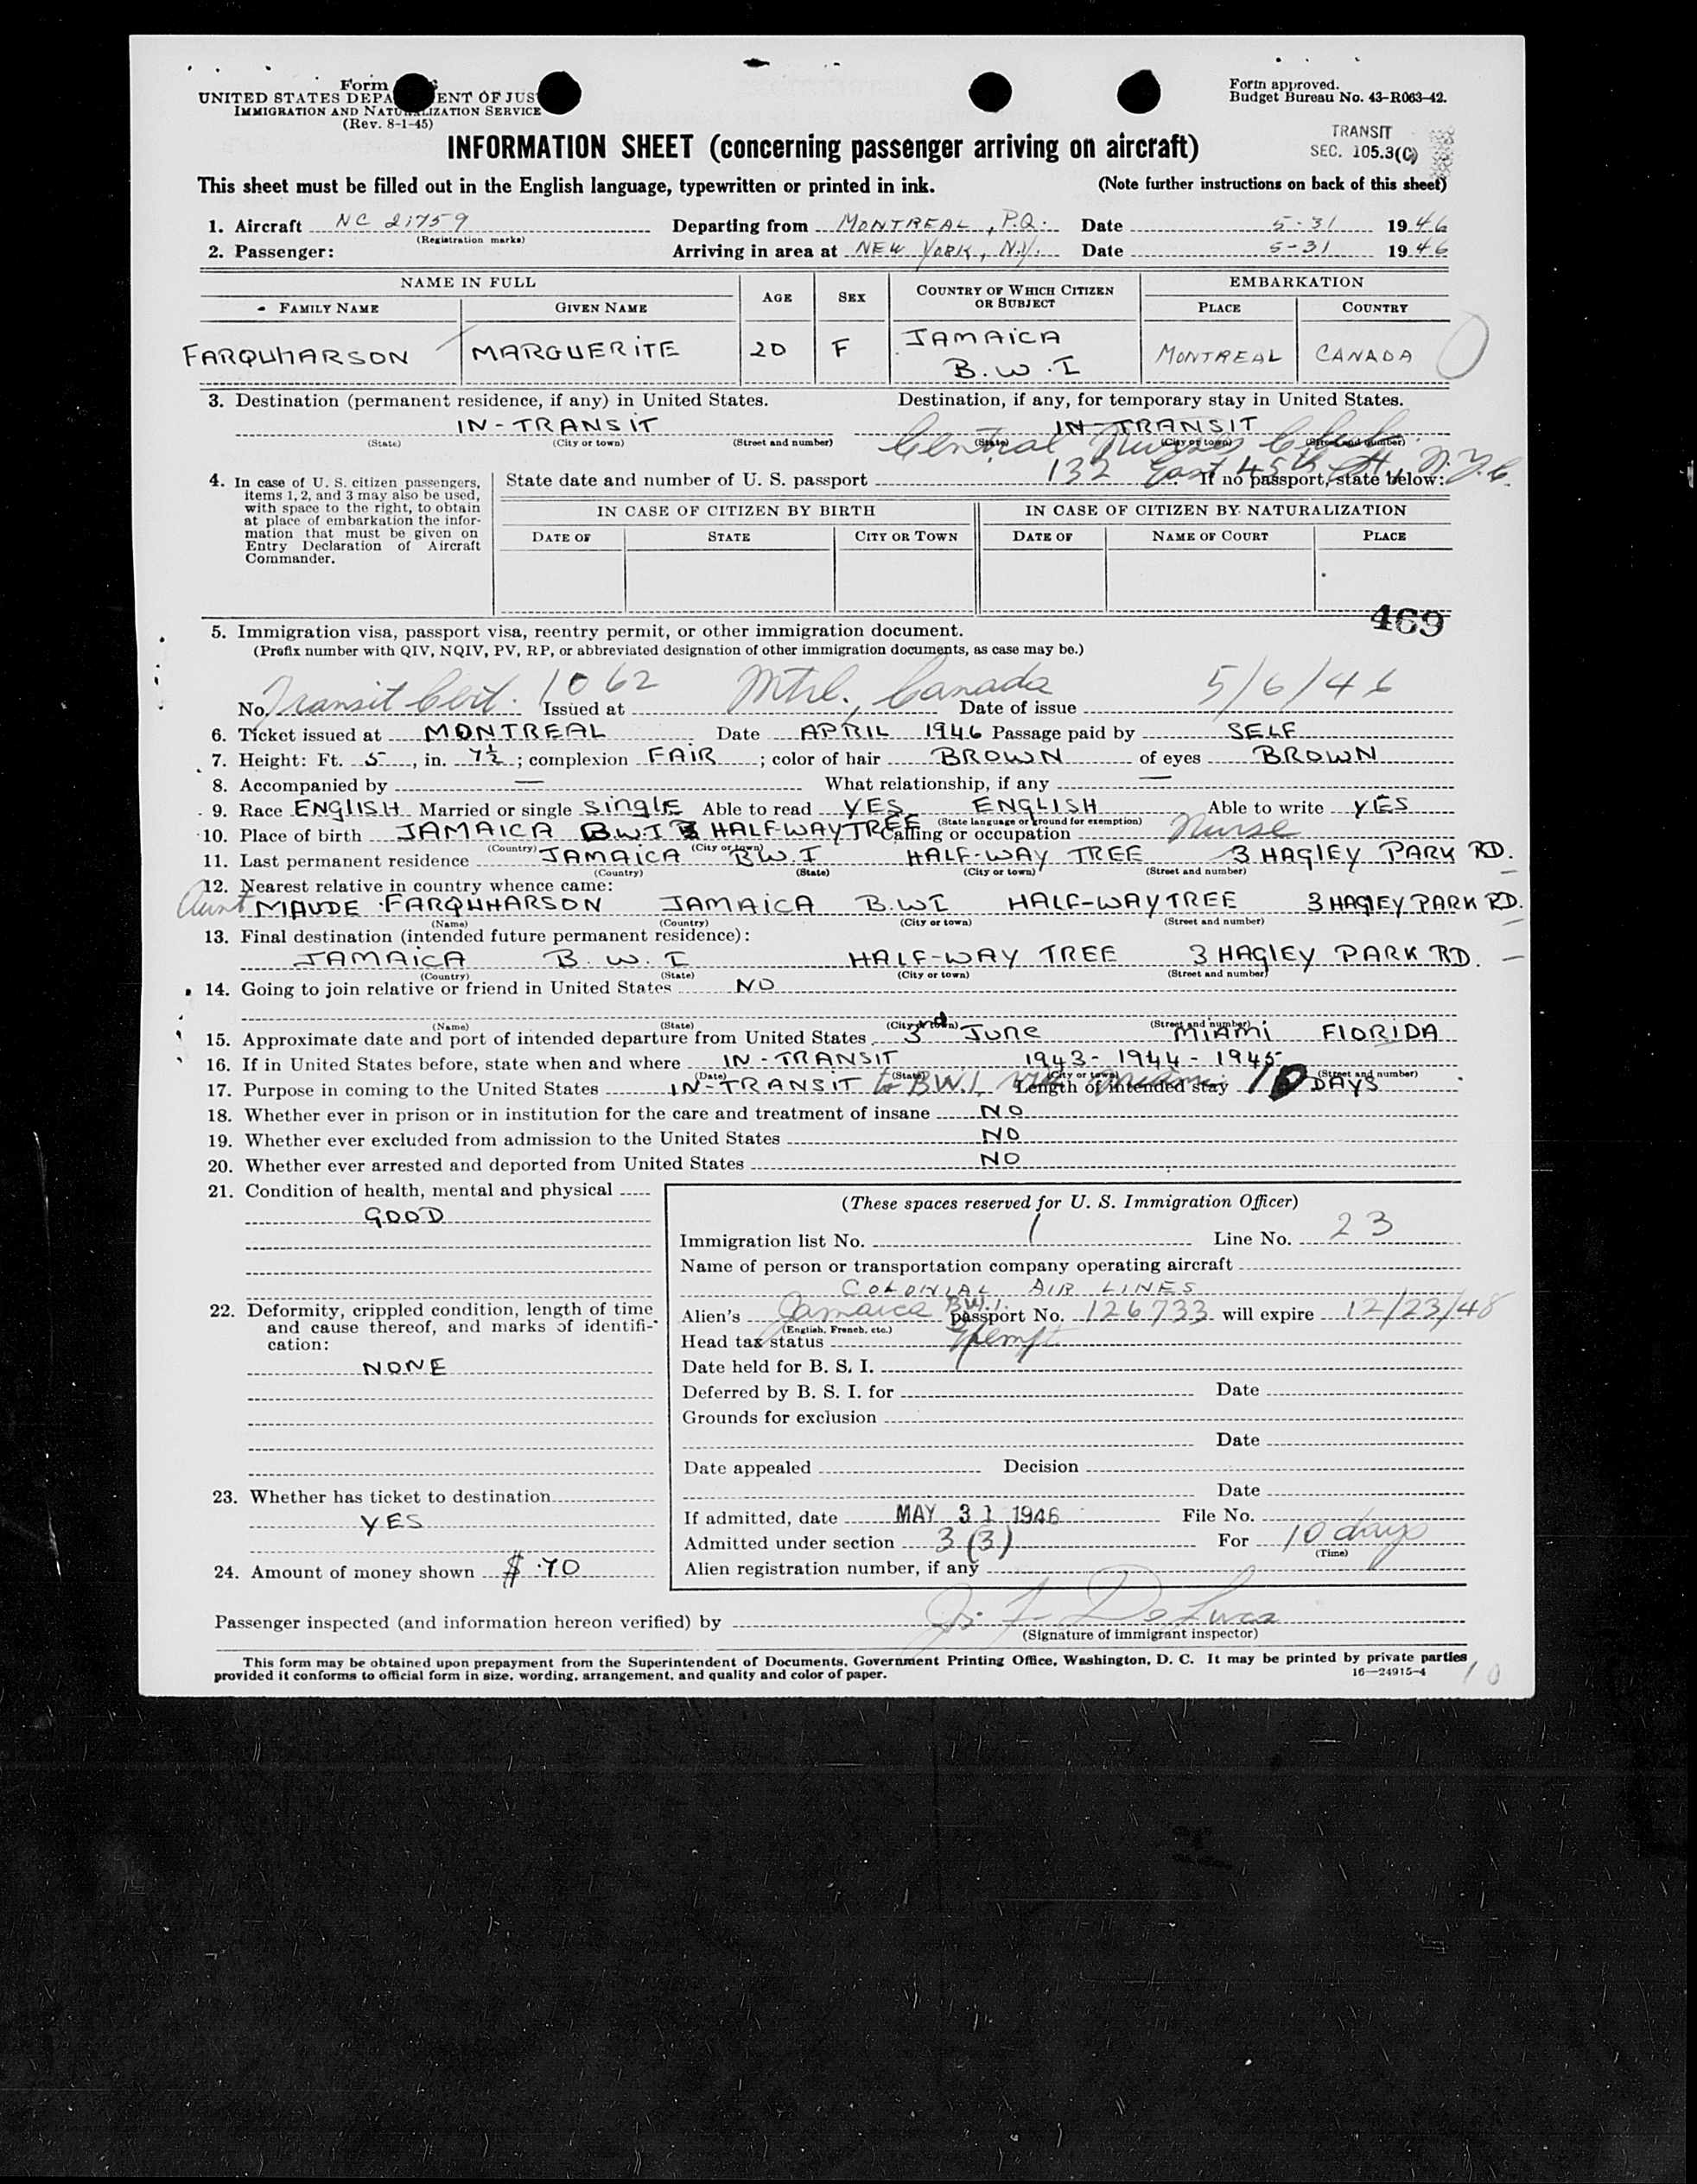 Form
UNITED STATES DEPA ENT OF JUS
IMMIGRATION AND NATURALIZATION SERVICE
(Rev. 8-1-45)
Form approved.
Budget Bureau No. 43-R063-42.
TRANSIT
SEC. 105.3(C)
INFORMATION SHEET (concerning passenger arriving on aircraft)
This sheet must be filled out in the English language, typewritten or printed in ink. (Note further instructions on back of this sheet)
1. Aircraft NC 21759 Departing from MONTREAL, P.Q. Date 5-31 1946
(Registration marks)
2. Passenger: Arriving in area at NEW YORK, N.Y. Date 5-31 1946
NAME IN FULL AGE SEX COUNTRY OF WHICH CITIZEN OR SUBJECT EMBARKATION
FAMILY NAME GIVEN NAME PLACE COUNTRY
FARQUHARSON MARGUERITE 20 F JAMAICA B.W.I MONTREAL CANADA
3. Destination (permanent residence, if any) in United States. Destination, if any, for temporary stay in United States.
IN-TRANSIT IN-TRANSIT
(State) (City or town) (Street and number) (State) (City or town) (Street and number)
Central Nurses Club
132 East 45th St. N.Y.C.
4. In case of U. S. citizen passengers, items 1, 2, and 3 may also be used, with space to the right, to obtain at place of embarkation the information that must be given on Entry Declaration of Aircraft Commander.
State date and number of U. S. passport If no passport, state below:
IN CASE OF CITIZEN BY BIRTH IN CASE OF CITIZEN BY NATURALIZATION
DATE OF STATE CITY OR TOWN DATE OF NAME OF COURT PLACE
469
5. Immigration visa, passport visa, reentry permit, or other immigration document.
(Prefix number with QIV, NQIV, PV, RP, or abbreviated designation of other immigration documents, as case may be.)
No. Transit Cert. 1062 Issued at Mtrl., Canada Date of issue 5/6/46
6. Ticket issued at MONTREAL Date APRIL 1946 Passage paid by SELF
7. Height: Ft. 5, in. 7½; complexion FAIR; color of hair BROWN of eyes BROWN
8. Accompanied by — What relationship, if any —
9. Race ENGLISH Married or single SINGLE Able to read YES ENGLISH Able to write YES
(State language or ground for exemption)
10. Place of birth JAMAICA B.W.I HALF-WAY TREE Calling or occupation Nurse
(Country) (City or town)
11. Last permanent residence JAMAICA B.W.I HALF-WAY TREE 3 HAGLEY PARK RD.
(Country) (State) (City or town) (Street and number)
12. Nearest relative in country whence came:
Aunt MAUDE FARQUHARSON JAMAICA B.W.I HALF-WAY TREE 3 HAGLEY PARK RD.
(Name) (Country) (City or town) (Street and number)
13. Final destination (intended future permanent residence):
JAMAICA B.W.I HALF-WAY TREE 3 HAGLEY PARK RD.
(Country) (State) (City or town) (Street and number)
14. Going to join relative or friend in United States NO
(Name) (State) (City or town) (Street and number)
15. Approximate date and port of intended departure from United States 3rd JUNE MIAMI FLORIDA
16. If in United States before, state when and where IN-TRANSIT 1943-1944-1945
(Date) (State) (City or town) (Street and number)
17. Purpose in coming to the United States IN-TRANSIT to B.W.I. via Miami Length of intended stay 10 DAYS
18. Whether ever in prison or in institution for the care and treatment of insane NO
19. Whether ever excluded from admission to the United States NO
20. Whether ever arrested and deported from United States NO
21. Condition of health, mental and physical
GOOD
22. Deformity, crippled condition, length of time and cause thereof, and marks of identification:
NONE
23. Whether has ticket to destination
YES
24. Amount of money shown $70
(These spaces reserved for U. S. Immigration Officer)
Immigration list No. 1 Line No. 23
Name of person or transportation company operating aircraft
COLONIAL AIR LINES
Alien's Jamaica B.W.I. passport No. 126733 will expire 12/23/48
(English, French, etc.)
Head tax status Exempt
Date held for B. S. I.
Deferred by B. S. I. for Date
Grounds for exclusion
Date
Date appealed Decision
Date
If admitted, date MAY 31 1946 File No.
Admitted under section 3(3) For 10 days
(Time)
Alien registration number, if any
Passenger inspected (and information hereon verified) by J. F. De Luca
(Signature of immigrant inspector)
This form may be obtained upon prepayment from the Superintendent of Documents, Government Printing Office, Washington, D. C. It may be printed by private parties
provided it conforms to official form in size, wording, arrangement, and quality and color of paper. 16—24915-4
10